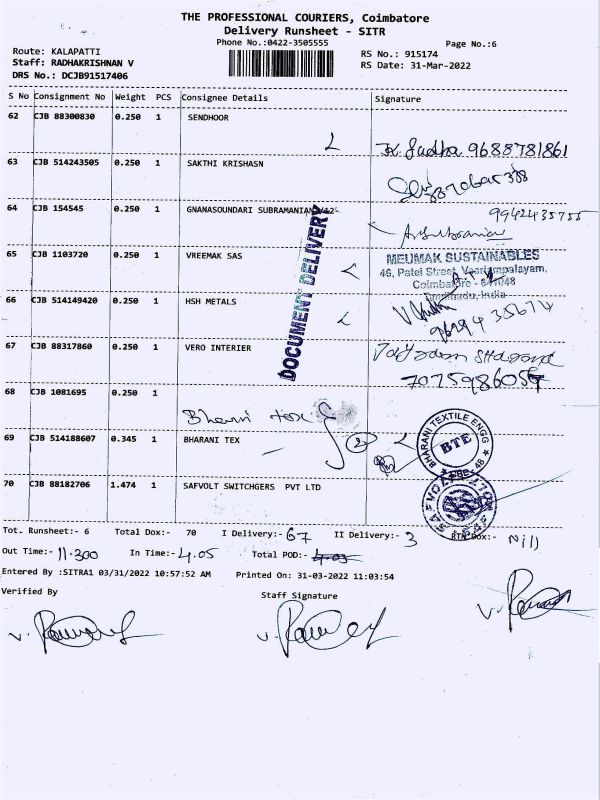 THE PROFESSIONAL COURIERS, Coimbatore
Delivery Runsheet - SITR
Phone No.:0422-3505555
Page No.:6
Route: KALAPATTI
Staff: RADHAKRISHNAN V
DRS No.: DCJB91517406
RS No.: 915174
RS Date: 31-Mar-2022
S No Consignment No Weight PCS Consignee Details Signature
62 CJB 88300830 0.250 1 SENDHOOR
9688781861
63 CJB 514243505 0.250 1 SAKTHI KRISHASN
64 CJB 154545 0.250 1 GNANASOUNDARI SUBRAMANIAN
9942435755
65 CJB 1103720 0.250 1 VREEMAK SAS
MEUMAK SUSTAINABLES
46, Patel Street, Veeriampalayam,
Coimbatore - 641048
Tamilnadu, India
66 CJB 514149420 0.250 1 HSH METALS
DOCUMENT DELIVERY
67 CJB 88317860 0.250 1 VERO INTERIER
68 CJB 1081695 0.250 1
Bharni tex
69 CJB 514188607 0.345 1 BHARANI TEX
2
BHARANI TEXTILE ENGG
BTE
70 CJB 88182706 1.474 1 SAFVOLT SWITCHGERS PVT LTD
Tot. Runsheet:- 6 Total Dox:- 70 I Delivery:- 67 II Delivery:- 3 RTN Dox:- Nill
Out Time:- 11.300 In Time:- 4.05 Total POD:- 4.05
Entered By :SITRA1 03/31/2022 10:57:52 AM Printed On: 31-03-2022 11:03:54
Verified By Staff Signature